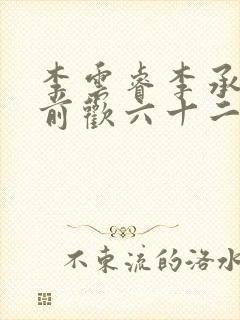 李雲睿李承
前歡六十二
不東流的洛水